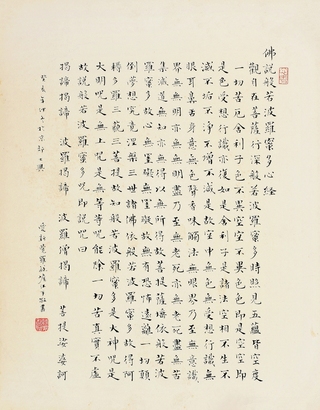 佛說般若波羅蜜多心經
觀自在菩薩行深般若波羅蜜多時照見五蘊皆空度
一切苦厄舍利子色不異空空不異色色即是空空即
是色受想行識亦復如是舍利子是諸法空相不生不
滅不垢不淨不增不減是故空中無色無受想行識無
眼耳鼻舌身意無色聲香味觸法無眼界乃至無意識
界無無明亦無無明盡乃至無老死亦無老死盡無苦
集滅道無智亦無得以無所得故菩提薩埵依般若波
羅蜜多故心無罣礙無罣礙故無有恐怖遠離一切顛
倒夢想究竟涅槃三世諸佛依般若波羅蜜多故得阿
耨多羅三藐三菩提故知般若波羅蜜多是大神呪是
大明呪是無上呪是無等等呪能除一切苦真實不虛
故說般若波羅蜜多呪即說呪曰
揭諦揭諦 波羅揭諦 波羅僧揭諦 菩提娑婆訶
癸亥
愛新覺羅